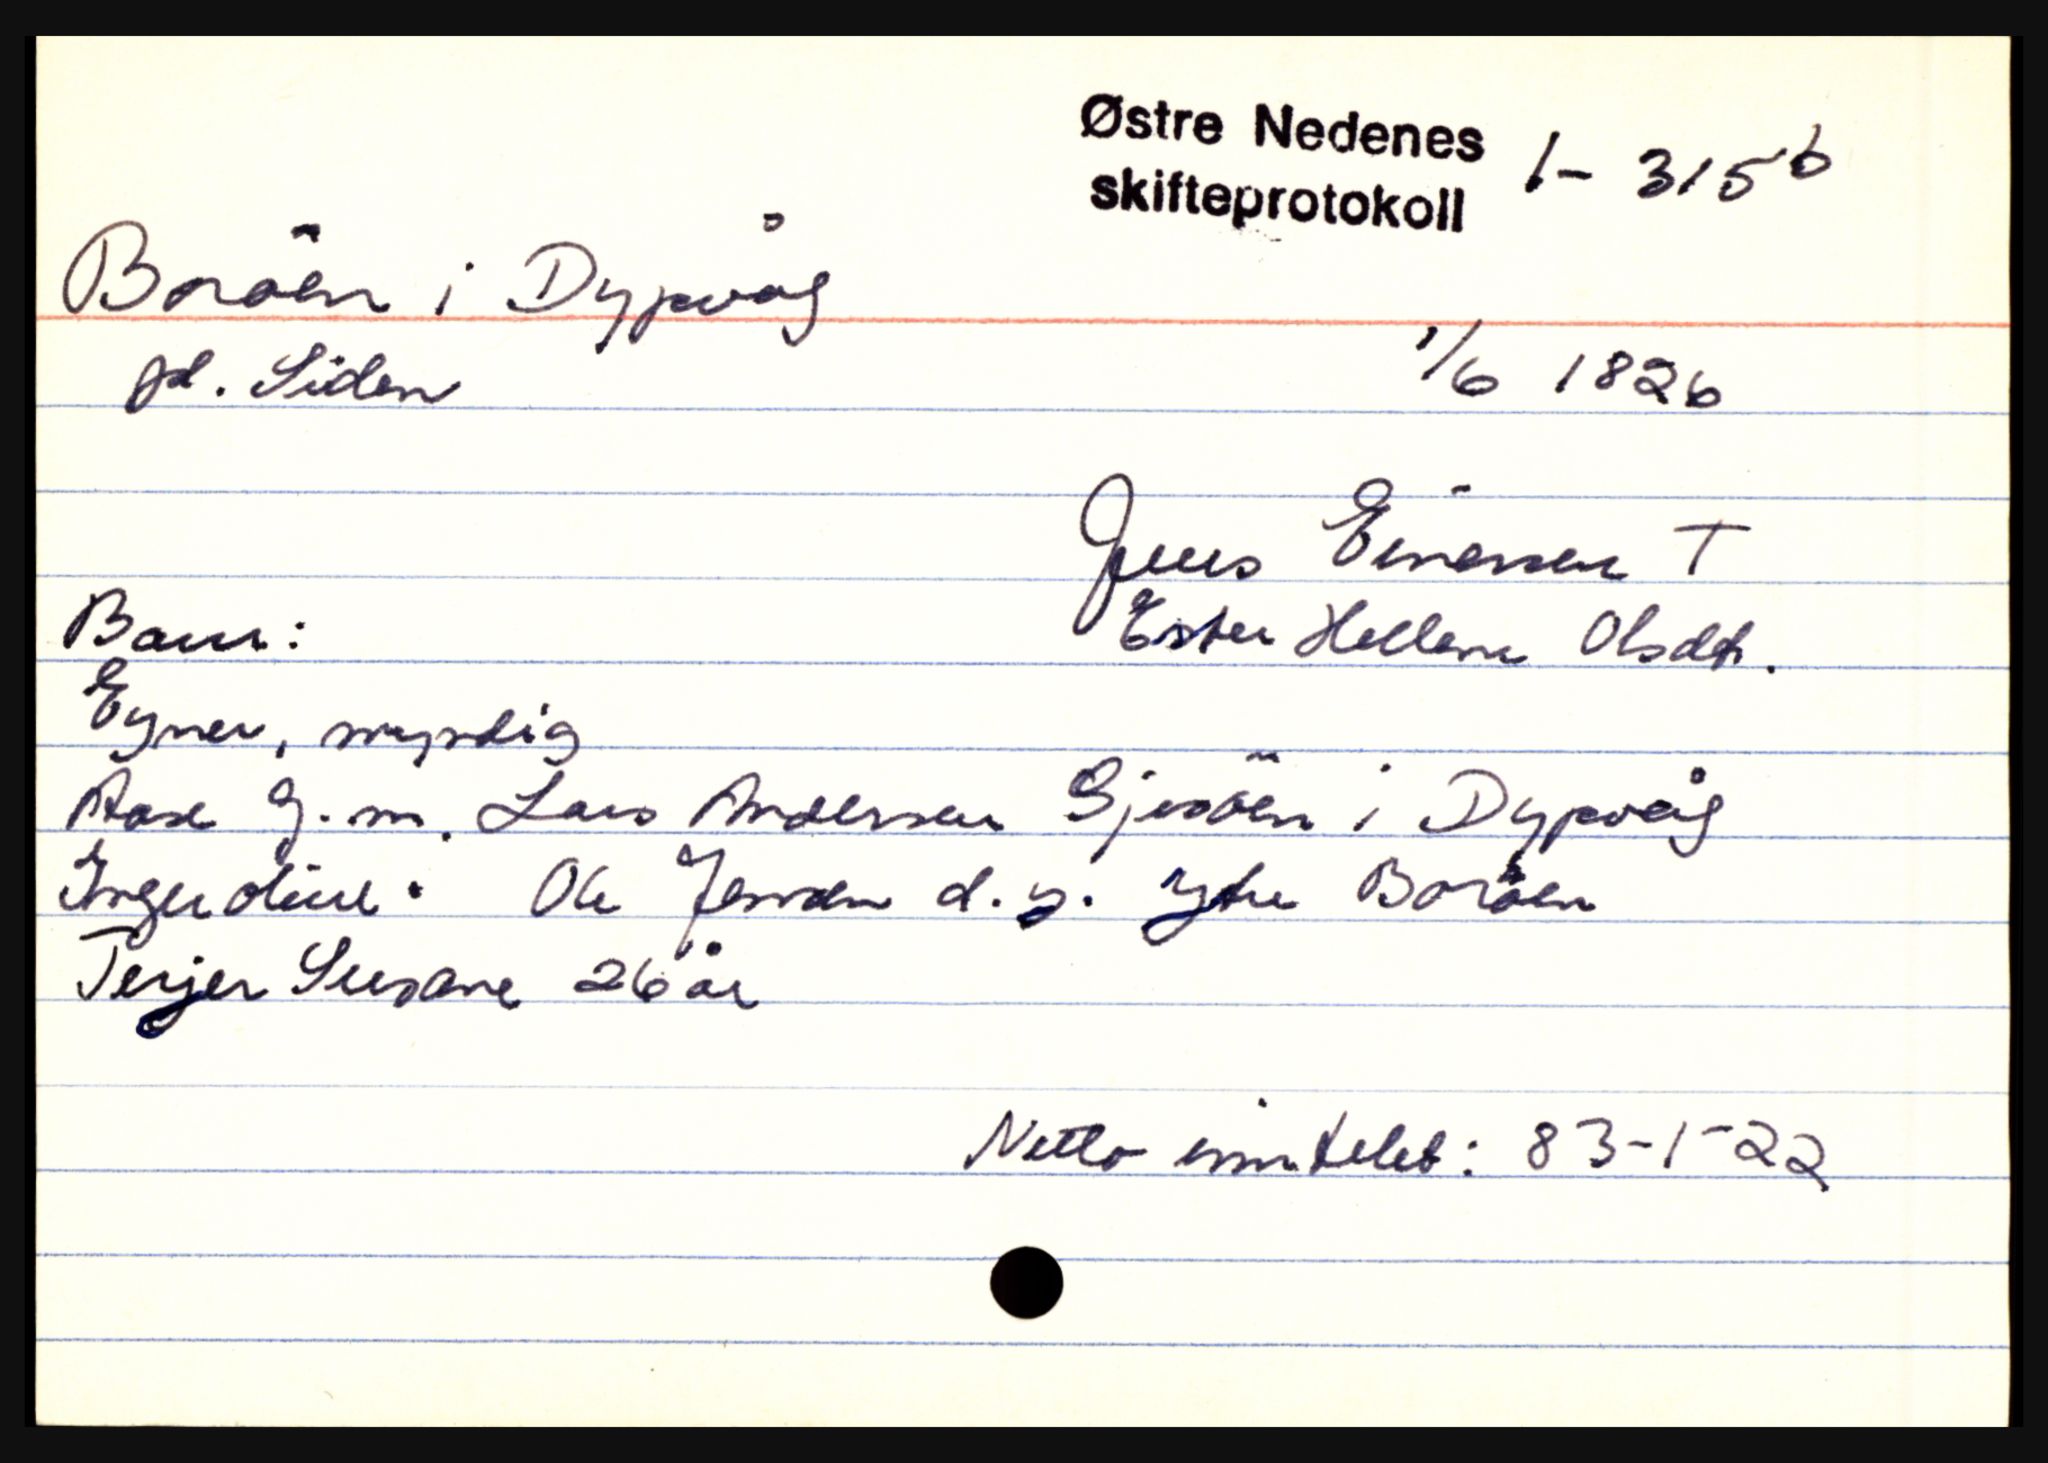 Østre Nedenes
skifteprotokoll 1- 315b
Boröen i Dypvåg
pl. Siden 1/6 1826
Jens Einersen T
Ester Hellene Olsdt.
Barn:
Eyner, myndig
Aase g. m. Lars Andersen Gjesöen i Dypvåg
Ingerdine " Ole Jensen d. y. Ytre Boröen
Terjer Susane 26 år
Netto inntekt: 83-1-22